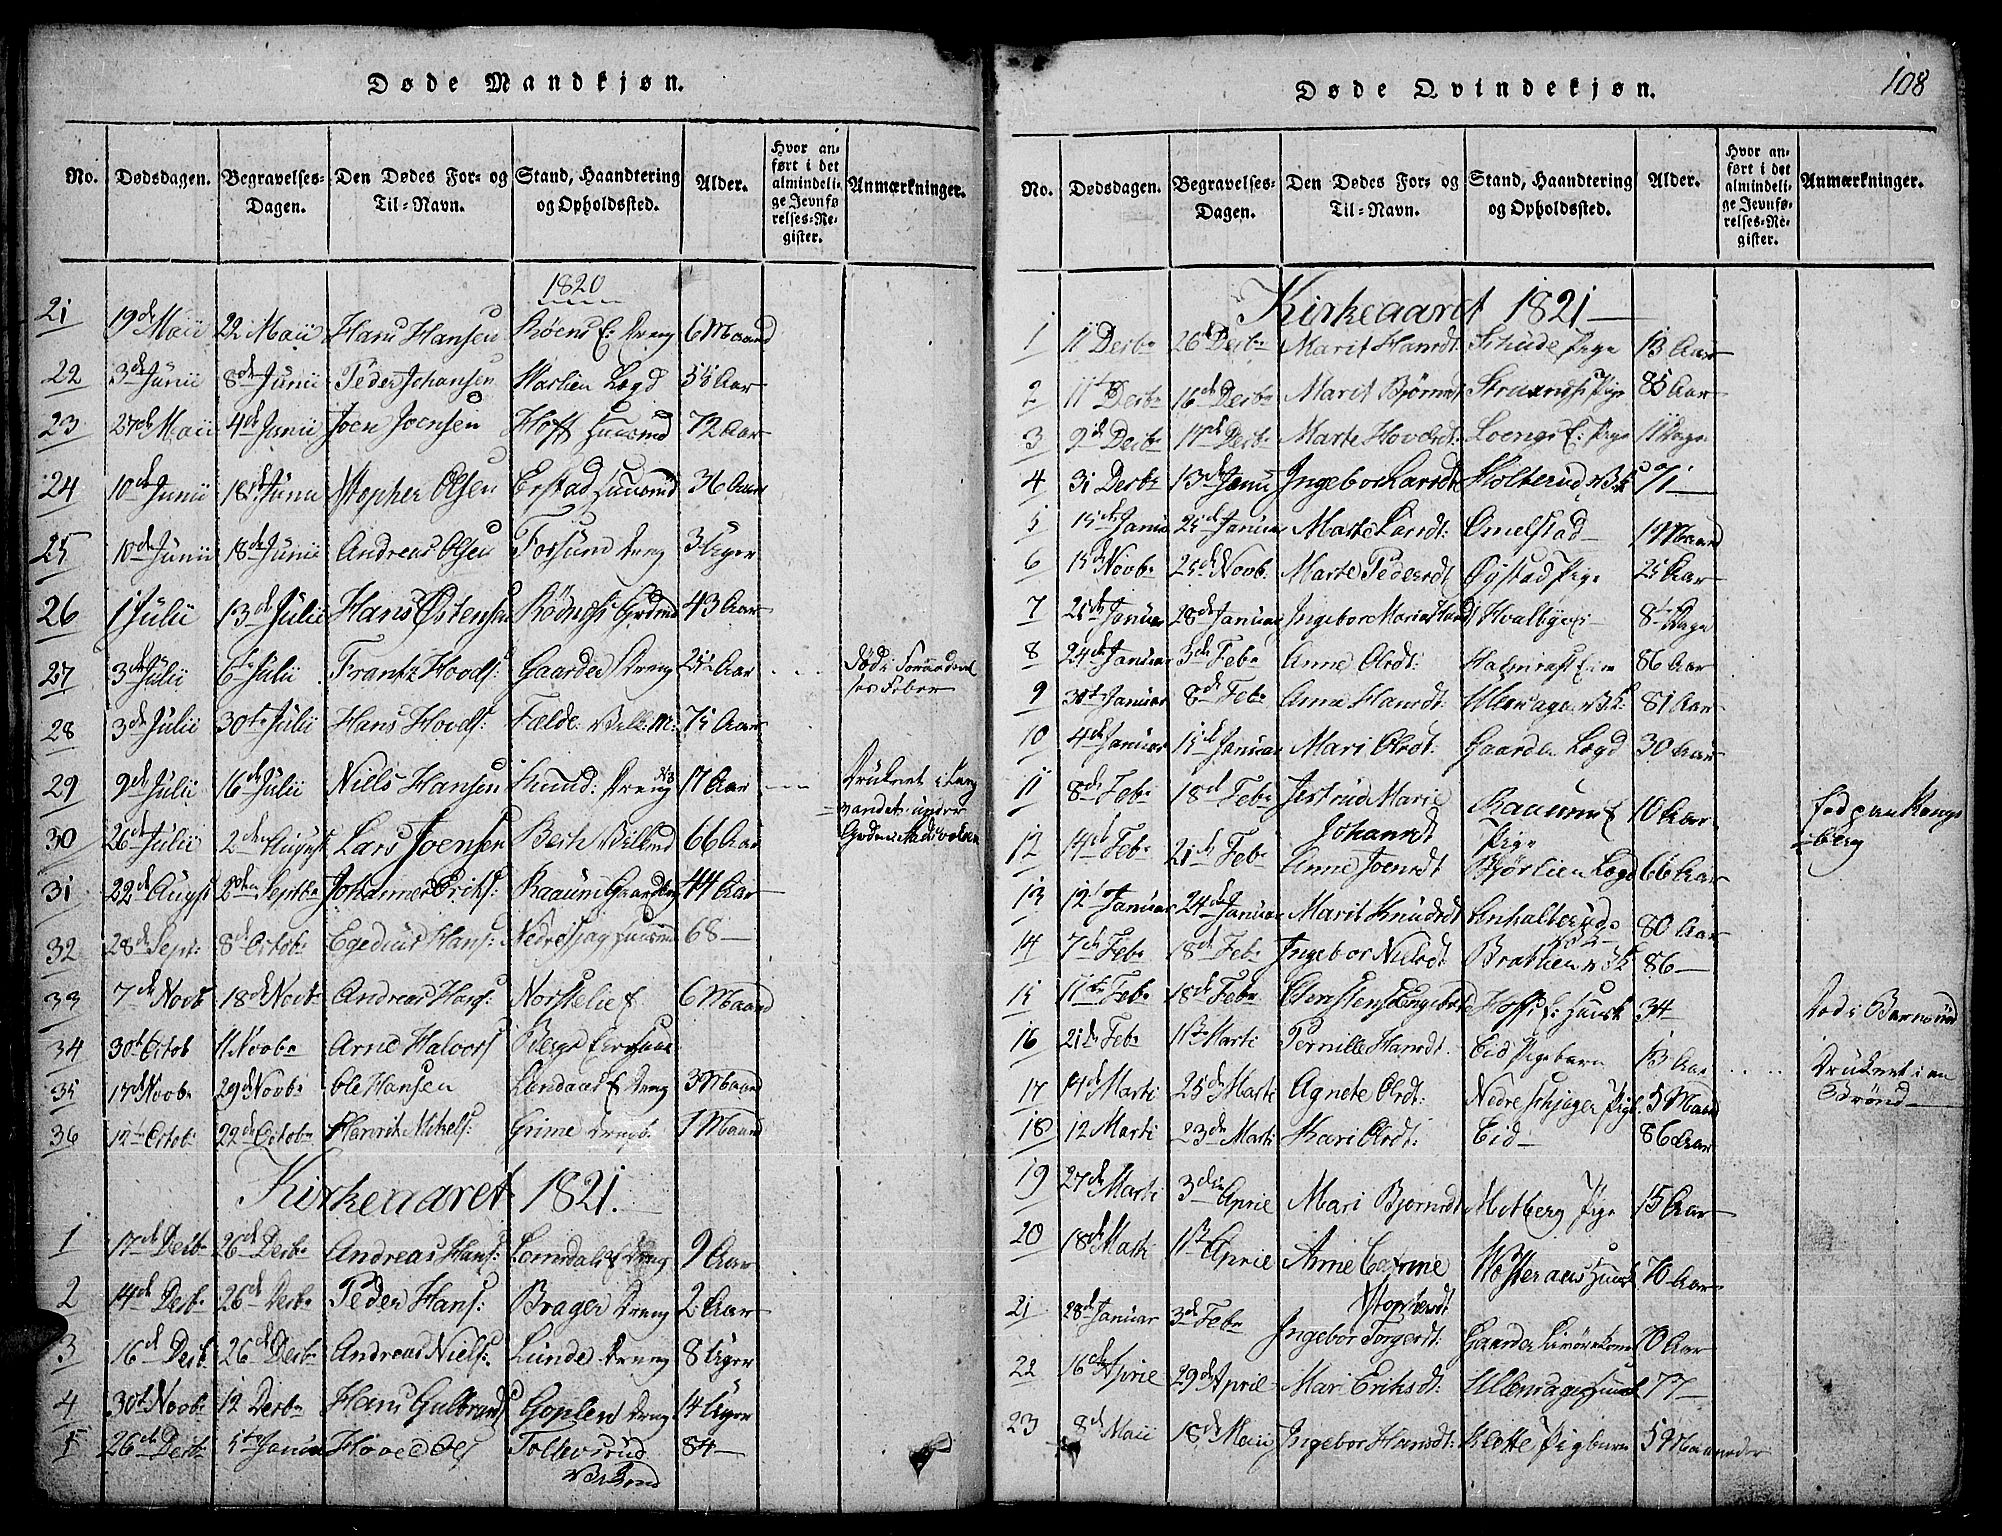 Døde Mandkjøn.
No. Dødsdagen. Begravelses-Dagen. Den Dødes For- og Til-Navn. Stand, Haandtering og Opholdssted. Alder. Hvor anført i det almindelige Jevnførelses-Register. Anmærkninger.
1820
21 19de Maii 22 Maii Hans Hansen Røens E: Dreng 6 Maaned
22 3de Junii 8de Junii Peder Johansen Lægd 55 Aar
23 27de Maii 4de Junii Joen Joensen Hoff Huusmd 72 Aar
24 10de Junii 18de Junii Stopher Olsen Erstad Huusmd 36 Aar
25 10de Junii 18de Junii Andreas Olsen Fossum Dreng 3 Uger
26 1 Julii 13de Julii Hans Østensen 43 Aar
27 3de Julii 6te Julii Frantz Hovels: Gaarder Dreng 2½ Aar Død i Forraadnelses Feber
28 3de Julii 30te Julii Hans Hovels: Fælde 75 Aar
29 9de Julii 16de Julii Niels Hansen Dreng 17 Aar Druknet i Randvandet under
30 26de Julii 2den August Lars Joensen 66 Aar
31 22de Augst 2den Septbr Johannes Eriks: Raaum Gaardbr 44 Aar
32 28de Sept: 8de Octobr Egedius Hans: Nedre Huusmd 68 —
33 7de Novb 18de Novbr Andreas Hans: Norstelie E 6 Maaned
34 30te Octob 11 Novbr Arne Halvors
35 17de Novbr 29de Novbr Ole Hansen Landaas E Dreng 3 Maaned
36 12te Octob 22de Octobr Henrik Mikels: Grime Drengb: 1 Maaned
Kirkeaaret 1821.
1 17de Decbr 26de Decbr Andreas Hans: Lomsdals E Dreng 9 Aar
2 14de Decbr 26de Decbr Peder Hans: Brager Dreng 2 Aar
3 16de Decb 26de Decbr Andreas Niels: Lunde Dreng 8 Uger
4 30te Novbr 12 Decbr Hans Gulbrands Goplen Dreng 14 Uger
5 26de Decbr 5te Januar Hovel Ols Tollevsrud 84 —
108
Døde Qvindekjøn.
No. Dødsdagen. Begravelses-Dagen. Den Dødes For- og Til-Navn. Stand, Haandtering og Opholdssted. Alder. Hvor anført i det almindelige Jevnførelses-Register. Anmærkninger.
Kirkeaaret 1821 —
1 11 Decbr 26de Decbr Marit Hansdt: Schude Pige 13 Aar
2 11te Decbr 16de Decbr Marit Bjørnsdt Pige 85 Aar
3 9de Decbr 17de Decbr Marte Hovelsdt: Loengs E: Pige 11 Dage
4 31 Decbr 13de Janu Ingebor Larsdt Holterud 71 —
5 15de Januar 25de Januar Marte Larsdt: Ømelstad 19 Maaned
6 15de Novbr 25de Novb. Marte Pedersdt Øystad Pige 25 Aar
7 21de Januar 28de Januar Ingebor Marie Hansdt Hvalbye E: 8te Dage
8 24de Januar 3de Febr Anne Olsdt: 86 Aar
9 30te Januar 8de Febr Anne Hansdt: Ulensager 81 Aar
10 4de Januar 15de Januar Mari Olsdt: Gaarder Lægd 30 Aar
11 8de Febr 18de Febr Jertrud Marie Johansdt Raaum E Pige 10 Aar født paa Kongsberg
12 14de Febr 21de Febr Anne Joensdt Bjørlien Lægd 66 Aar
13 12te Januar 24de Januar Marit Knudsdt 80 Aar
14 7de Febr 18de Febr Ingebor Nielsdt Bratlien 86 —
15 11te Febr 18de Febr Engebretsdt Hoffs E: Husk 34 Død i Barnsnød
16 21de Febr 11te Marti Pernille Hansdt: Eid Pigebarn 13 Aar Druknet i en Brønd
17 14de Marti 25de Marti Agnete Olsdt: Nedre Schjager Pigeb: 5 Maaned
18 12 Marti 23de Marti Kari Olsdt: Eid — 86 Aar
19 27de Marti 3die Aprie Mari Bjørnsdt Motberg Pige 15 Aar
20 18de Marti 11te Aprie Anne Catrine Stophersdt Husk 70 Aar
21 28de Januar 3de Febr Ingebor Torgersdt: Gaarder 70 Aar
22 16de Aprie 29de Aprie Mari Eriksdt: Ulensager Husk 77 —
23 8de Maii 18de Maii Ingebor Hansdt: Klette Pigbarn 5 Maaneder